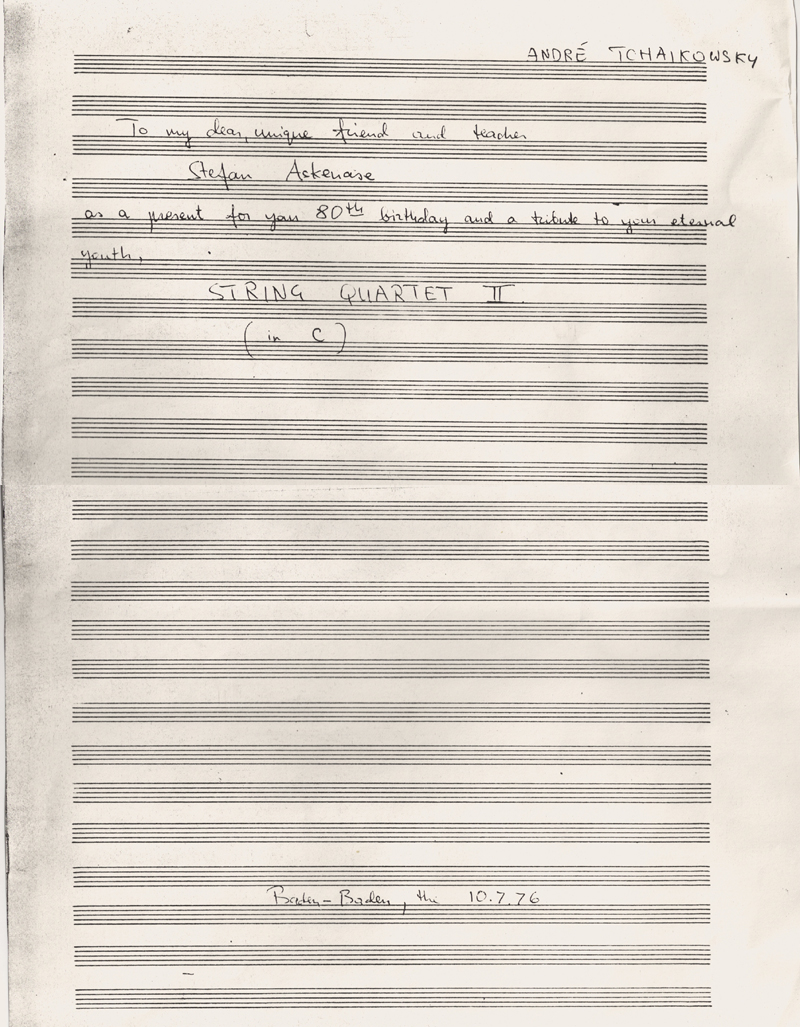 ANDRÉ TCHAIKOWSKY
To my dear, unique friend and teacher
Stefan Askenase
as a present for your 80th birthday and a tribute to your eternal
youth,
STRING QUARTET II
(in C)
Baden-Baden, the 10.7.76